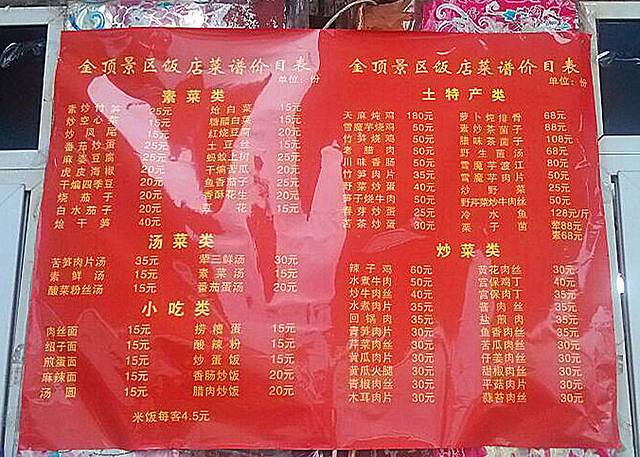 金顶景区饭店菜谱价目表
单位：份
素菜类
素炒竹笋 25元
炒空心菜 25元
炒凤尾 20元
番茄炒蛋 25元
麻婆豆腐 25元
虎皮海椒 20元
干煸四季豆 20元
烧茄子 20元
白水茄子 20元
烩干笋 40元
烩白菜 15元
糖醋白菜 15元
红烧豆腐 20元
土豆丝 15元
蚂蚁上树 25元
干煸苦瓜 20元
鱼香茄子 25元
香酥花生 20元
15元
汤菜类
苦笋肉片汤 35元
素鲜汤 15元
酸菜粉丝汤 15元
荤三鲜汤 30元
素菜汤 15元
番茄蛋汤 20元
小吃类
肉丝面 15元
绍子面 15元
煎蛋面 15元
麻辣面 15元
汤圆 15元
捞糟蛋 15元
酸辣粉 15元
炒蛋饭 15元
香肠炒饭 20元
腊肉炒饭 20元
米饭每客4.5元
金顶景区饭店菜谱价目表
单位：份
土特产类
天麻炖鸡 180元
雪魔芋烧鸡 50元
竹笋烧鸡 50元
老腊肉 50元
川味香肠 50元
竹笋肉片 35元
野菜炒蛋 40元
笋子烧牛肉 50元
春芽炒蛋 25元
苦茶炒蛋 30元
萝卜炖排骨 68元
素炒茶菌子 68元
腊味茶菌子 108元
野生菌汤 68元
雪魔芋渡江 80元
雪魔芋肉片 50元
炒野菜 25元
野芹菜炒牛肉丝 50元
冷水鱼 128元/斤
栗子菌 荤88元
素68元
炒菜类
辣子鸡 60元
水煮牛肉 50元
炒牛肉丝 40元
水煮肉片 35元
回锅肉 35元
青笋肉片 30元
芹菜肉丝 30元
黄瓜肉片 30元
黄瓜火腿 30元
青椒肉丝 30元
木耳肉片 30元
黄花肉丝 30元
宫保鸡丁 40元
宫保肉丁 35元
酱肉丝 35元
盐煎肉 35元
鱼香肉丝 35元
苦瓜肉丝 30元
仔姜肉丝 30元
甜椒肉丝 30元
平菇肉片 30元
蒜苔肉丝 30元